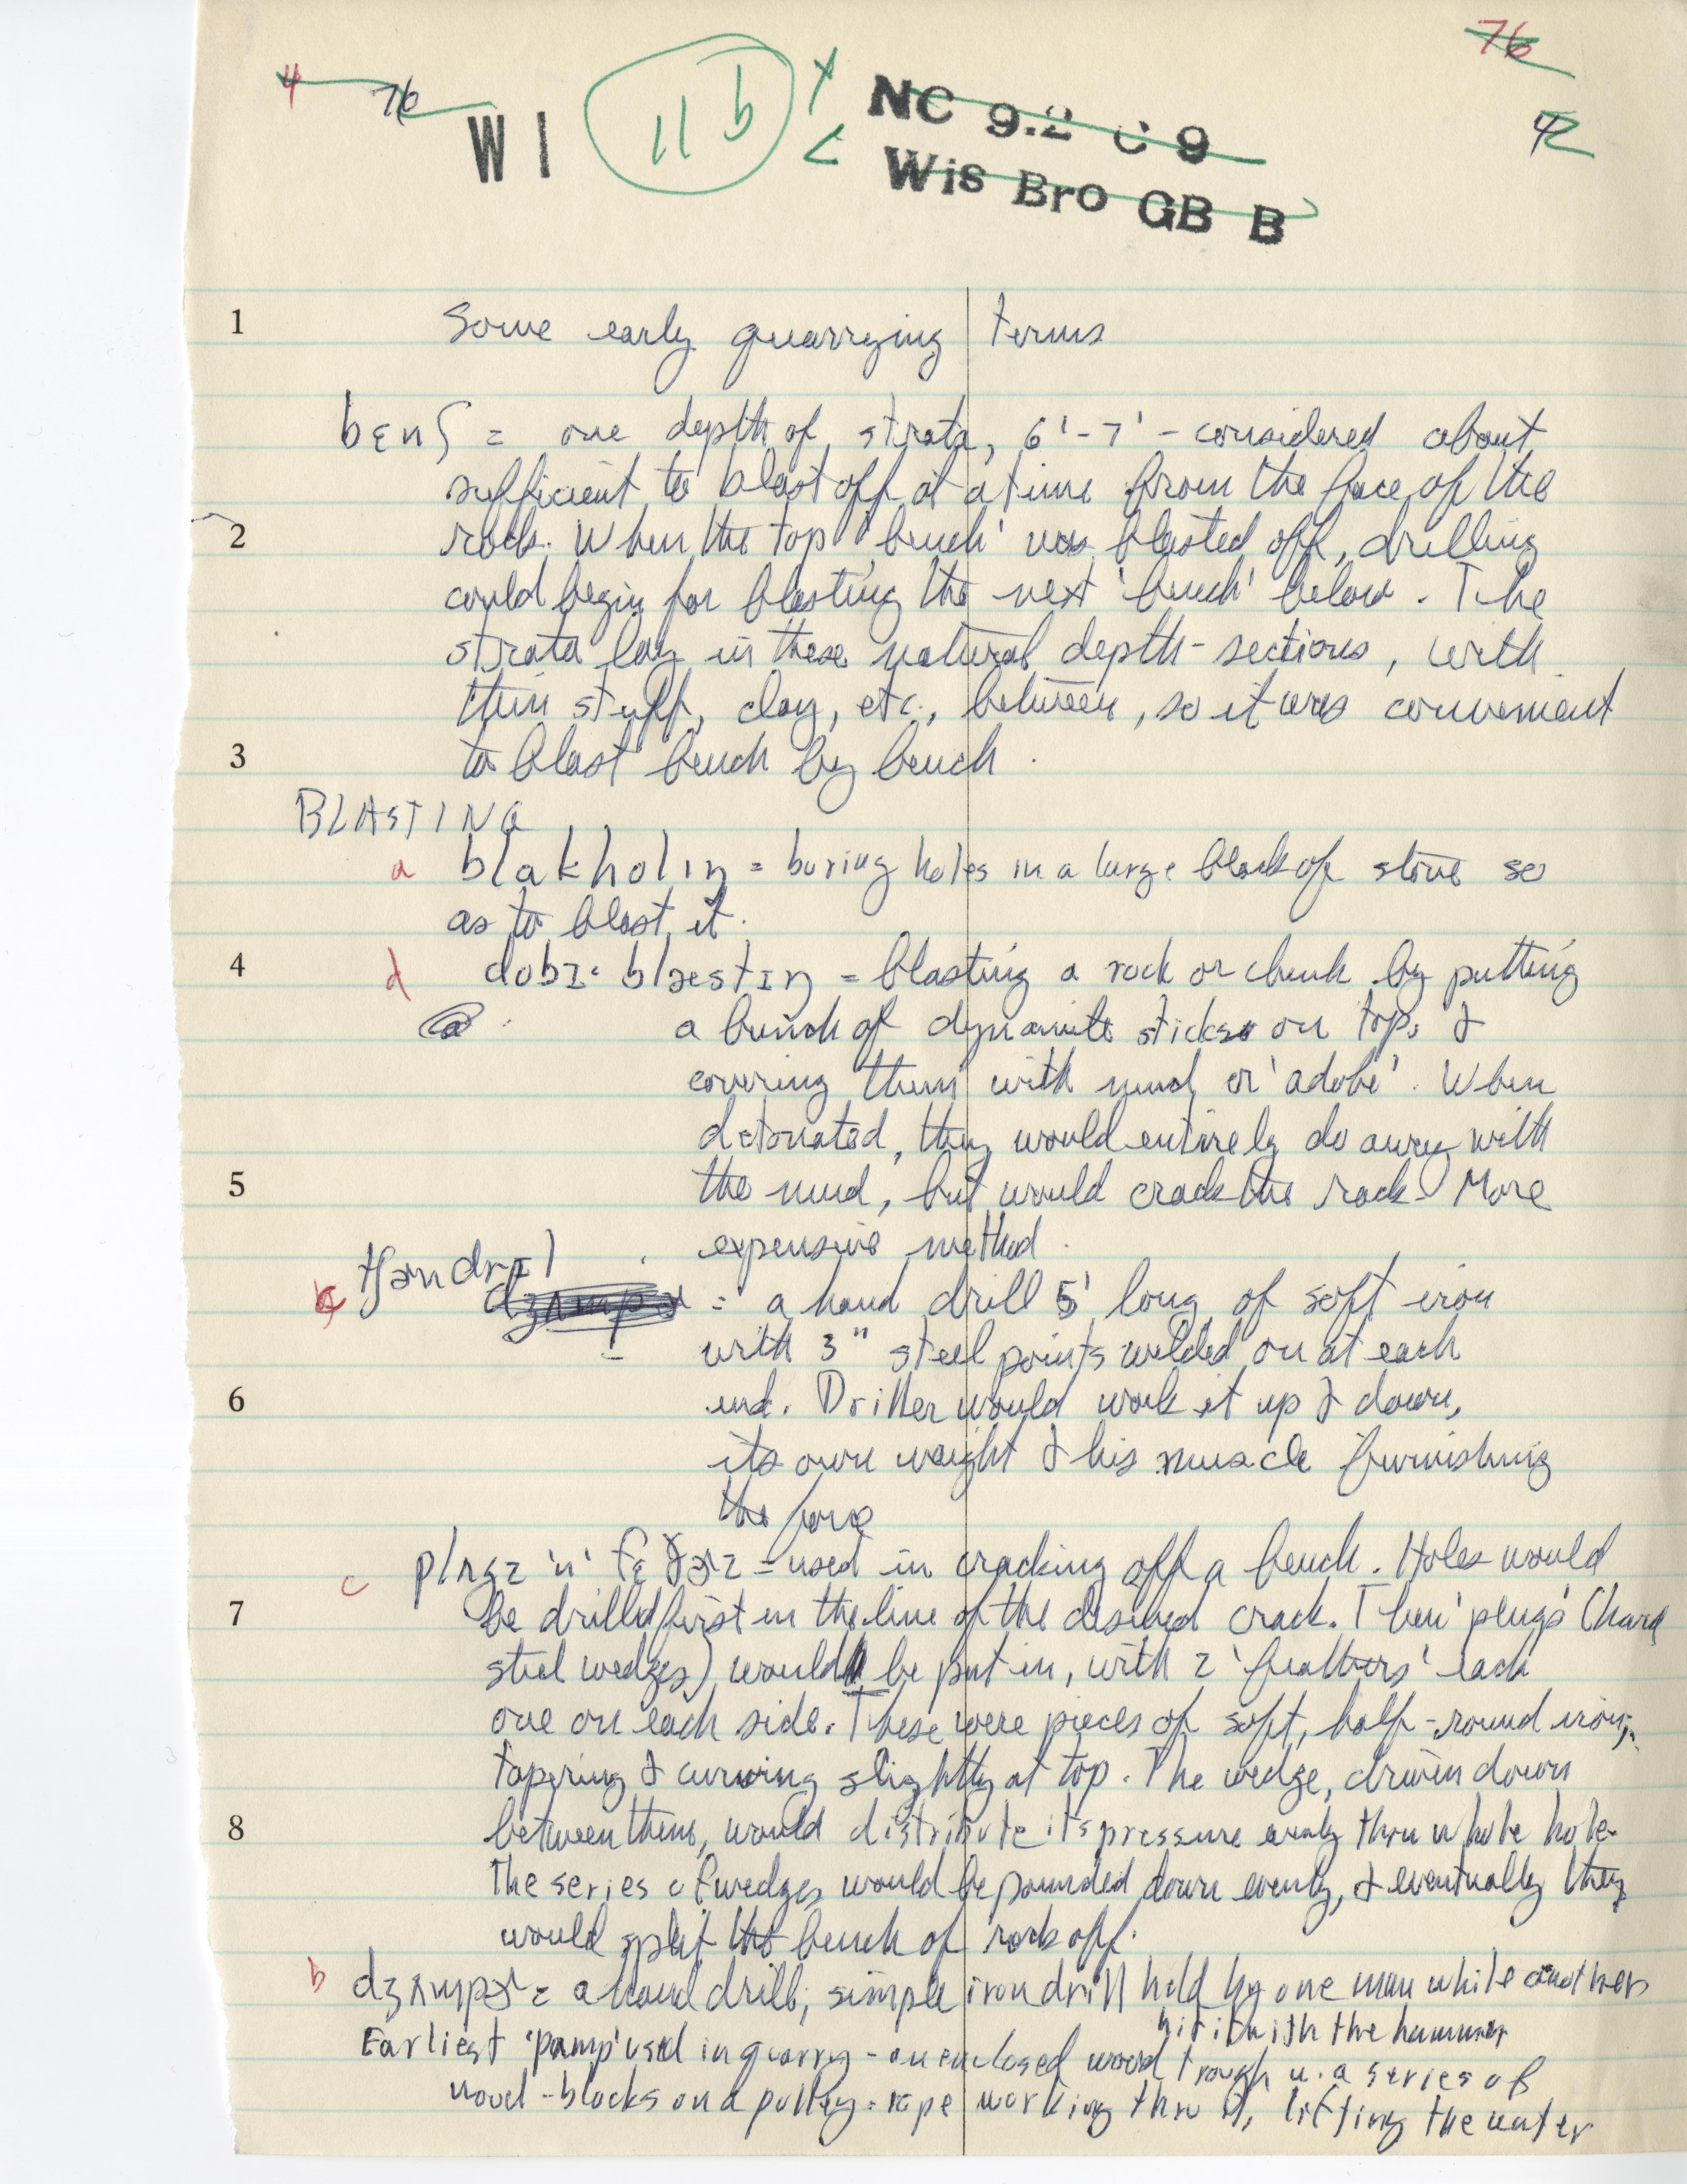 4 76 76
W I 11 b NC 9.2 C 9
Wis Bro GB B 42
1 Some early quarrying terms
bɛnʃ = one depth of strata, 6'-7' - considered about
sufficient to blast off at a time from the face of the
2 rock. When the top 'bench' was blasted off, drilling
could begin for blasting the next 'bench' below. The
strata lay in these natural depth-sections, with
thin stuff, clay, etc., between, so it was convenient
3 to blast bench by bench.
BLASTING
a blakholɪŋ = boring holes in a large block of stone so
as to blast it.
4 d dobɪ· blæstɪŋ = blasting a rock or chunk by putting
a bunch of dynamite sticks on top, &
covering them with mud, or 'adobe'. When
detonated, they would entirely do away with
5 the mud, but would crack the rock. More
expensive method.
drɪl
= a hand drill 5' long of soft iron
with 3" steel points welded on at each
6 end. Driller would work it up & down,
its own weight & his muscle furnishing
the force
c plʌgz 'n' fɛðɚz = used in cracking off a bench. Holes would
7 be drilled first in the line of the desired crack. Then 'plugs' (hard
steel wedges) would be put in, with 2 'feathers' each
one on each side. These were pieces of soft, half-round iron,
tapering & curving slightly at top. The wedge, driven down
8 between them, would distribute its pressure evenly thru whole hole.
The series of wedges would be pounded down evenly, & eventually they
would split the bench of rock off.
b dʒʌmpɚ = a hand drill; simple iron drill held by one man while another
hit it with the hammer
Earliest 'pump' used in quarry - an enclosed wood trough w. a series of
wood-blocks on a pulley-rope working thru it, lifting the water